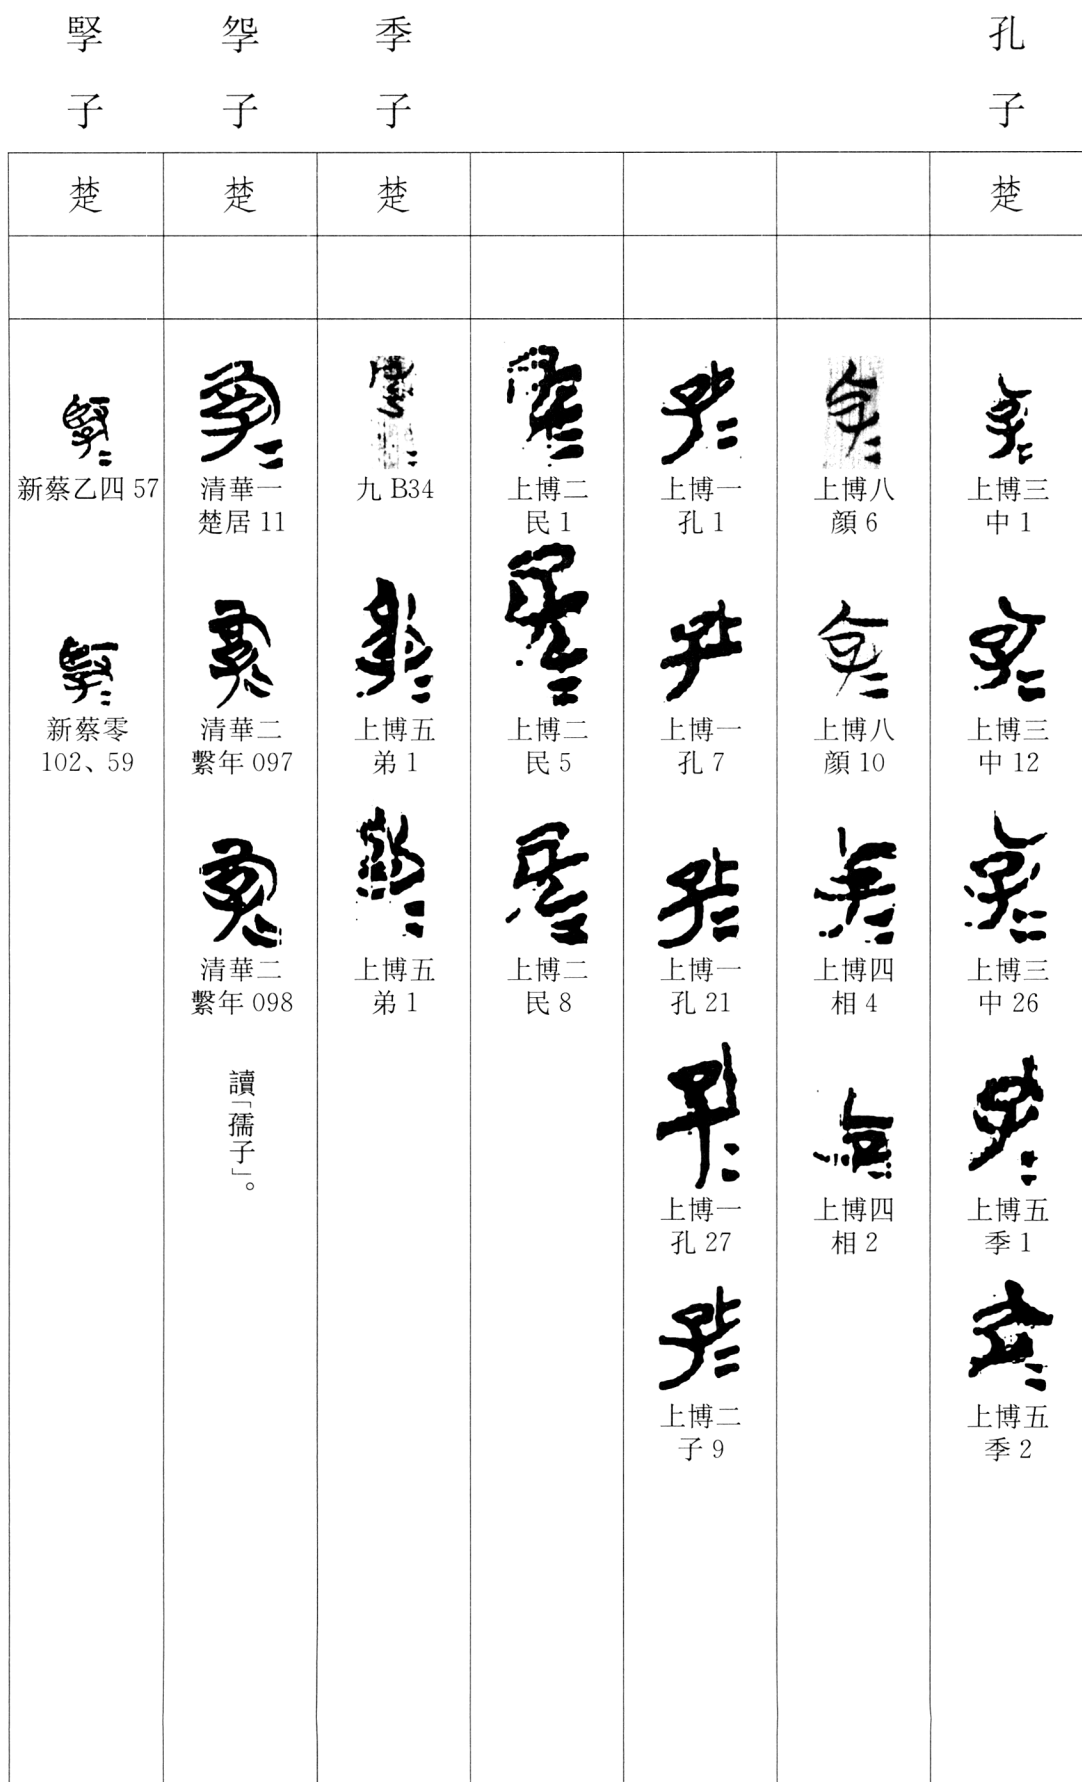 孔子
楚
上博三
中 1
上博三
中 12
上博三
中 26
上博五
季 1
上博五
季 2
上博八
顏 6
上博八
顏 10
上博四
相 4
上博四
相 2
上博一
孔 1
上博一
孔 7
上博一
孔 21
上博一
孔 27
上博二
子 9
上博二
民 1
上博二
民 5
上博二
民 8
季子
楚
九 B34
上博五
弟 1
上博五
弟 1
子
楚
清華一
楚居 11
清華二
繫年 097
清華二
繫年 098
讀「孺子」。
子
楚
新蔡乙四 57
新蔡零
102、59